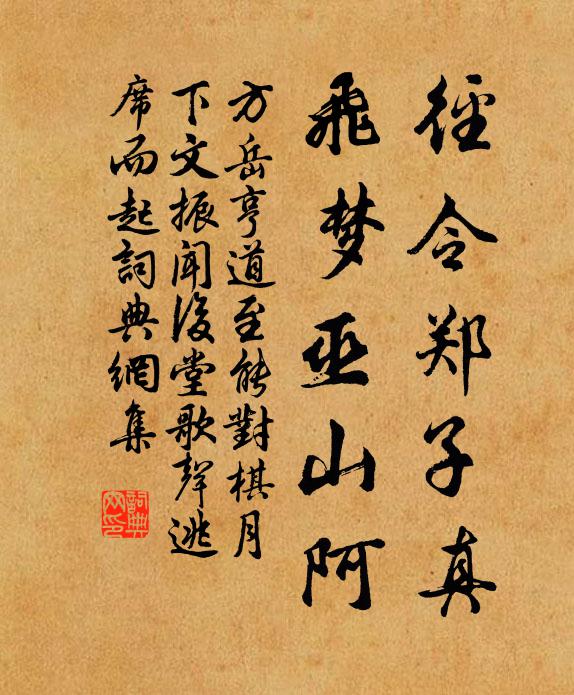 径令郑子真
飛梦巫山阿
方岳亨道至能對棋月
下文振闻後堂歌聲逃
席而起詞典網集
詞典
网印